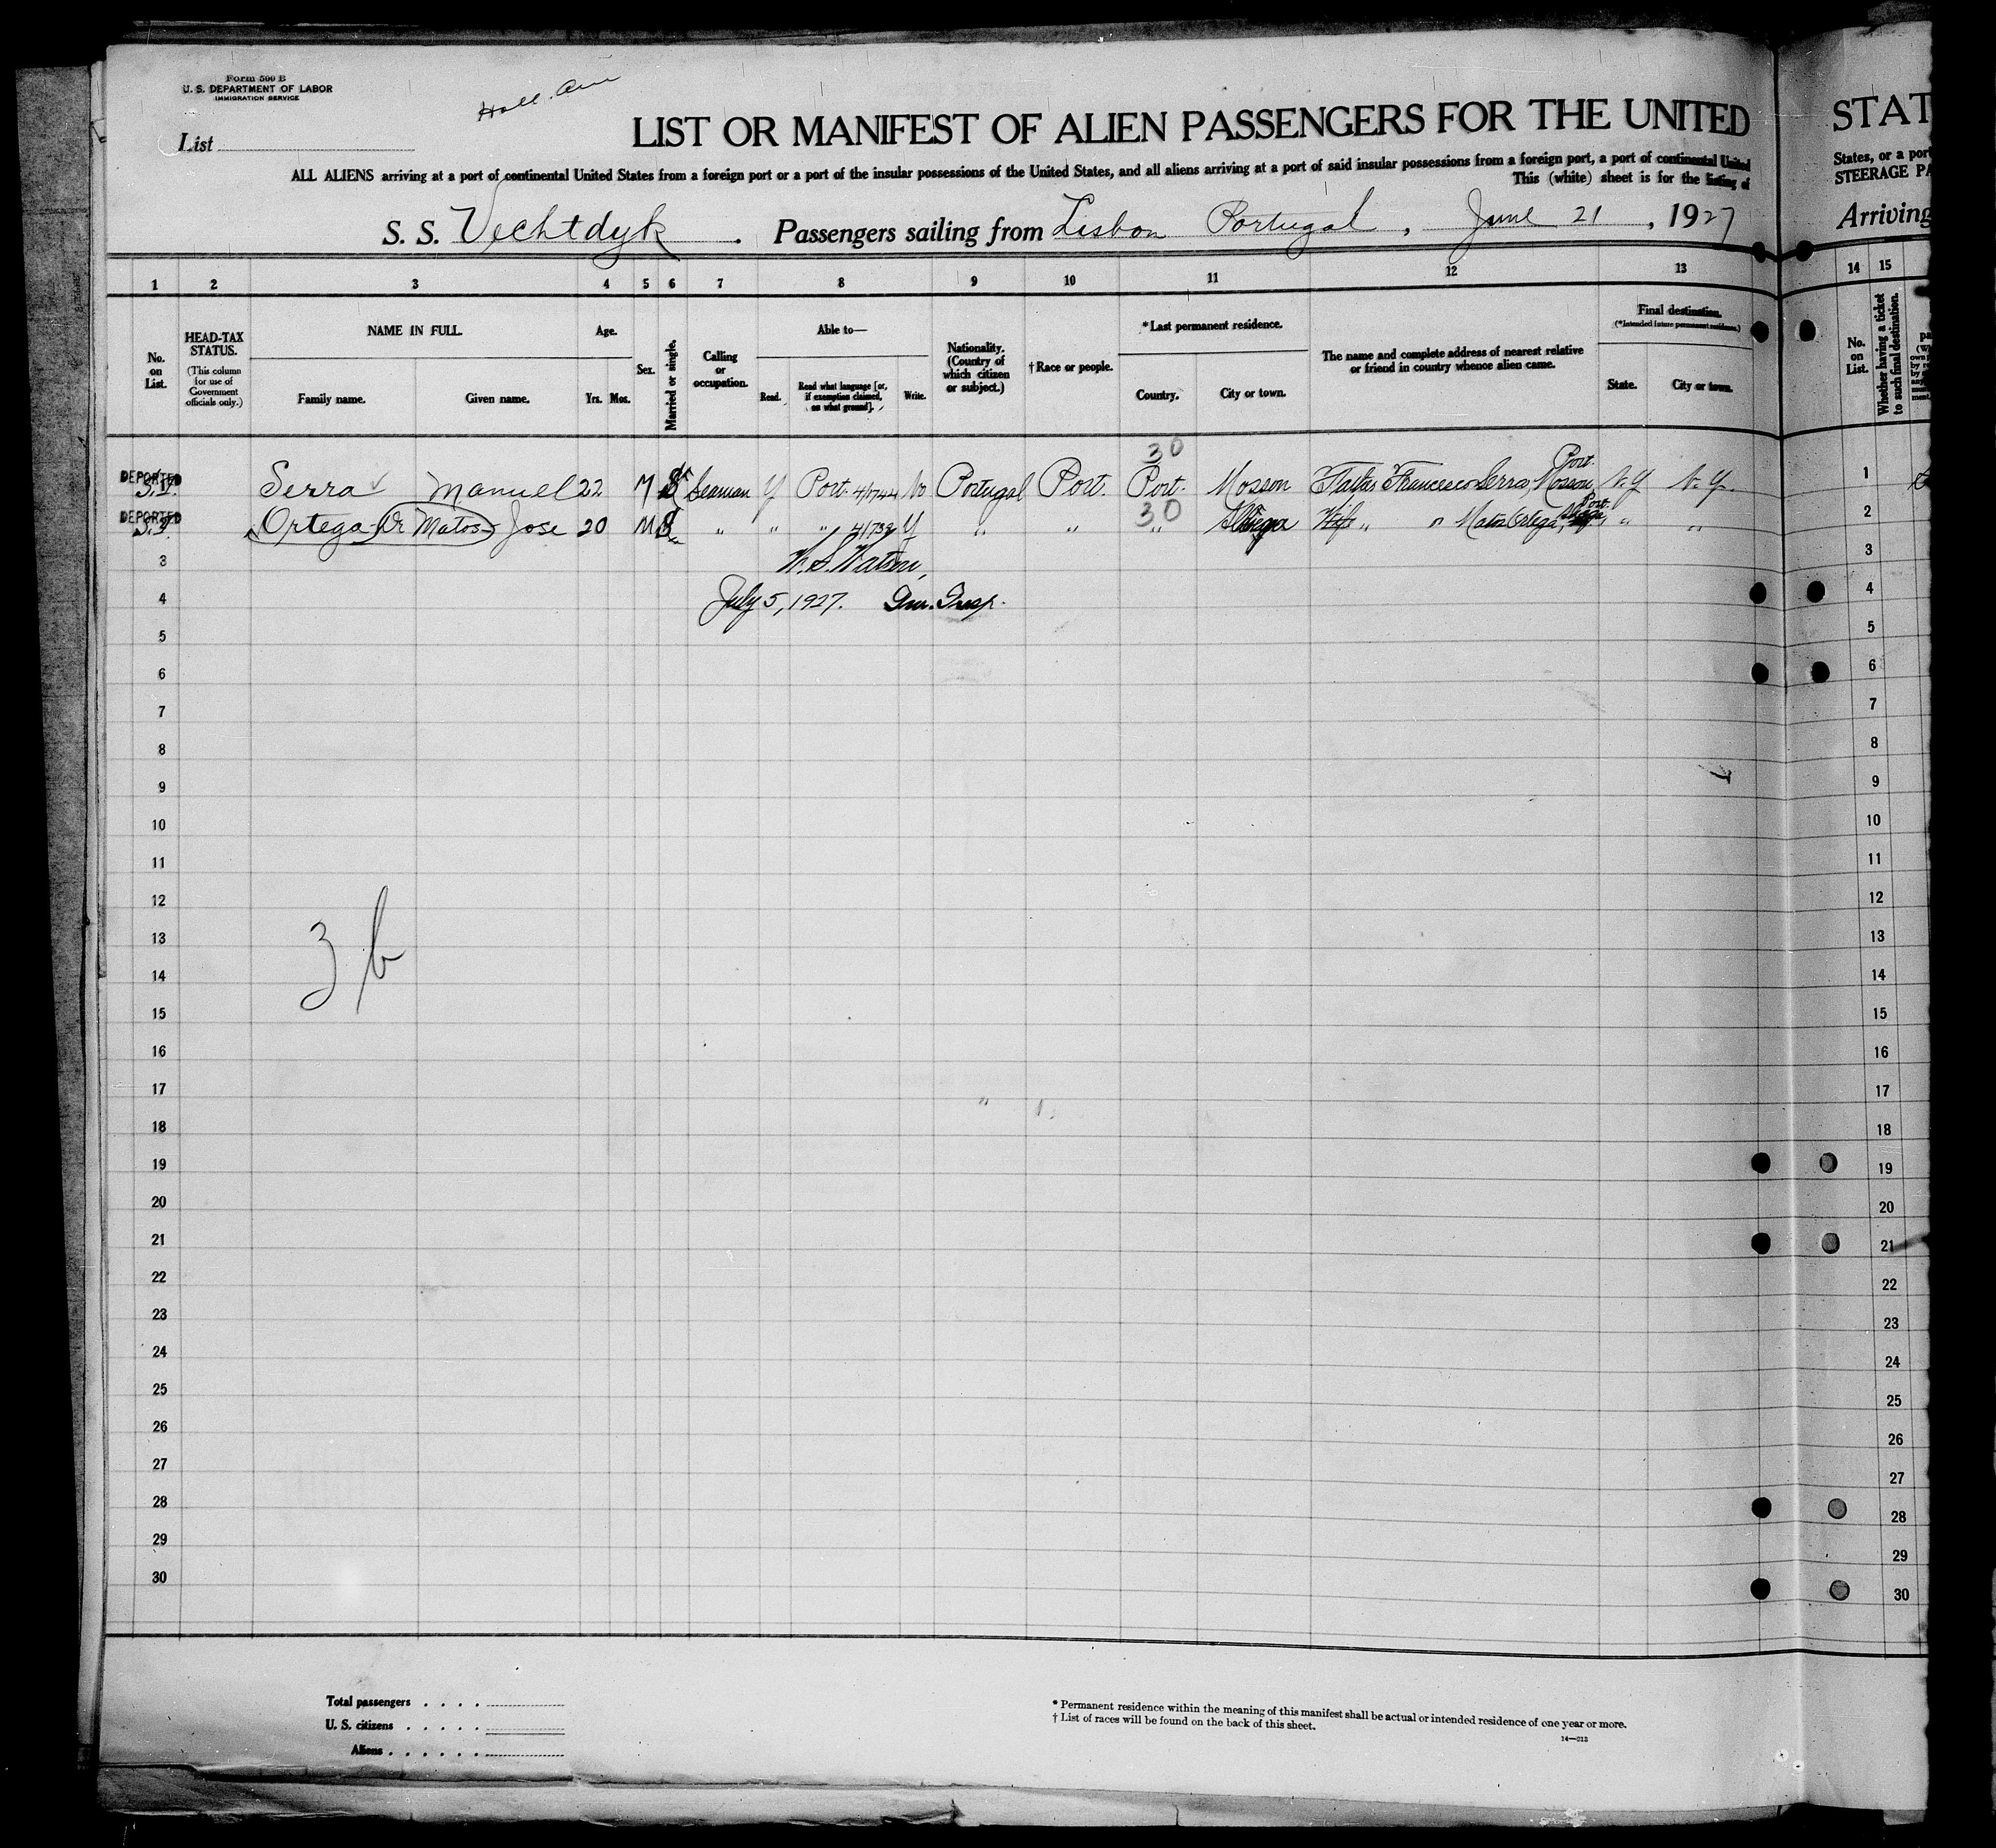 Form 500 B
U. S. DEPARTMENT OF LABOR
IMMIGRATION SERVICE
Holl. Am
List
LIST OR MANIFEST OF ALIEN PASSENGERS FOR THE UNITED
STAT
ALL ALIENS arriving at a port of continental United States from a foreign port or a port of the insular possessions of the United States, and all aliens arriving at a port of said insular possessions from a foreign port, a port of continental United
States, or a port
This (white) sheet is for the listing of
STEERAGE PA
S. S. Vechtdyk . Passengers sailing from Lisbon Portugal , June 21 , 1927
Arriving
1 2 3 4 5 6 7 8 9 10 11 12 13
14 15
No. on List.
HEAD-TAX STATUS.
(This column for use of Government officials only.)
NAME IN FULL.
Family name. Given name.
Age.
Yrs. Mos.
Sex.
Married or single.
Calling or occupation.
Able to—
Read. Read what language [or, if exemption claimed, on what ground]. Write.
Nationality. (Country of which citizen or subject.)
† Race or people.
* Last permanent residence.
Country. City or town.
The name and complete address of nearest relative or friend in country whence alien came.
Final destination.
(*Intended future permanent residence.)
State. City or town.
No. on List.
Whether having a ticket to such final destination.
30
DEPORTED S.I. Serra Manuel 22 M S Seaman Y Port. No Portugal Port. Port. Mosson Father Francesco Serra, Mosson Port. N.Y. N.Y.
1
30
DEPORTED S.I. Ortega Or Matos Jose 20 M S " " " 4/739 Y " " " " Matos Ortega, Port. " "
2
3 W. S. Watson,
3
4 July 5, 1927. Imm. Insp.
4
5
5
6
6
7
7
8
8
9
9
10
10
11
11
12
12
13
13
3 b
14
14
15
15
16
16
17
17
18
18
19
19
20
20
21
21
22
22
23
23
24
24
25
25
26
26
27
27
28
28
29
29
30
30
Total passengers . . . .
U. S. citizens . . . . .
Aliens . . . . . .
* Permanent residence within the meaning of this manifest shall be actual or intended residence of one year or more.
† List of races will be found on the back of this sheet.
14—013